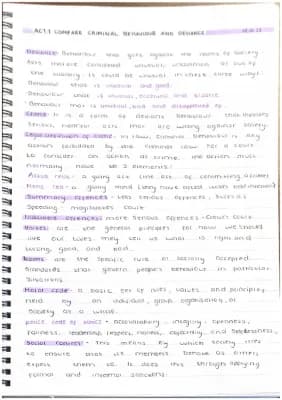 AC1.1 COMPARE CRIMINAL BEHAVIOUR AND DEVIANCE
Deviance: Behaviour that goes against the norms of society
It is unusual and good.
Behaviour that is unusual, eccentric and bizarre.
Behaviour that is unusual, bad and disapproved of.
Crime: is a form of deviant behaviour that
serious, harmful acts that are wrong
Legal definition of crime: in law, criminal behaviour is any
action forbidden by the criminal law. For a court
to consider an action as crime, the action must
normally have 2 elements:
Actus reus: a guilty act
Mens rea: a guilty mind
Summary offences: Less serious offences,
speeding - magistrates court
Indictable offences: more serious offences - Crown court.
Values: are the general principles for how we should
live our lives. They tell us what is right and
wrong, good and bad.
Norms: are the specific rules or socially accepted
standards that govern people's behaviour in particular
situations.
Moral code: a basic set of rules, values and principles,
held by an individual, group, organisation, or
society as a whole.
police code of ethics: Accountability, integrity, openness,
fairness, leadership, respect, honesty, objectivity, and selflessness.
Social Control: This means by which society tries
to ensure that its members behave as others
expect them to. It does this through applying
formal and informal sanctions.